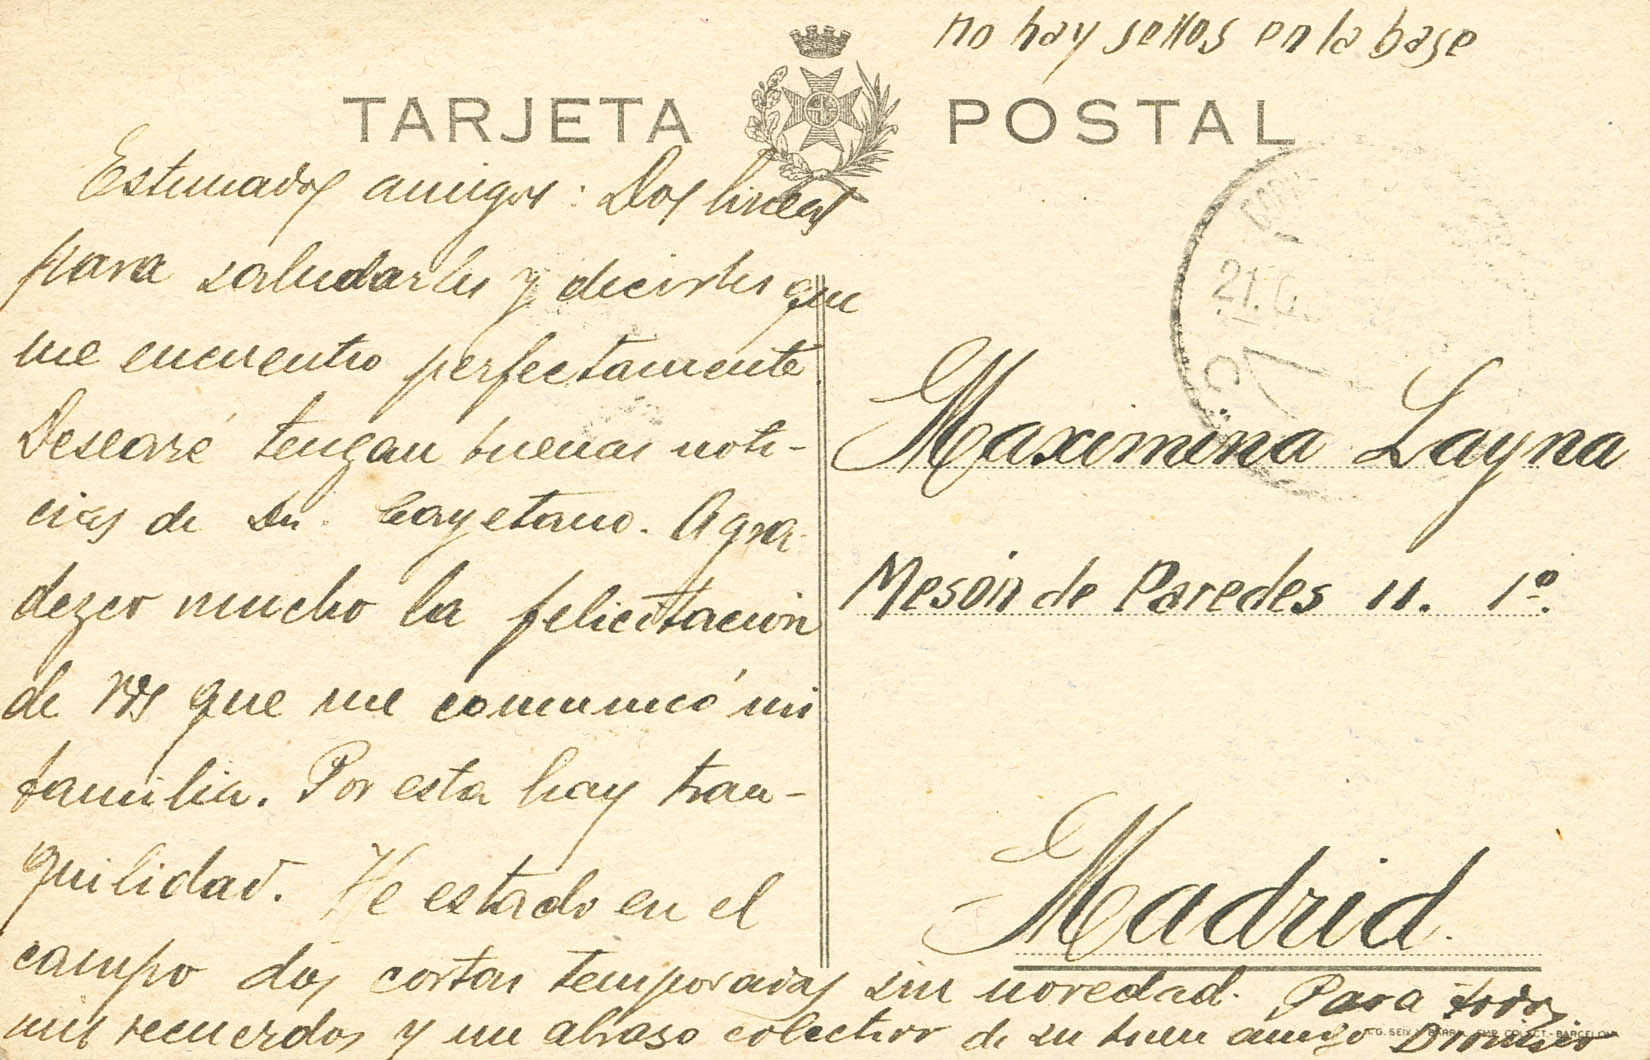 no hay sellos en la base
TARJETA POSTAL
Estimados amigos: Dos lineas
para saludarles y decirles que
me encuentro perfectamente.
Desearé tengan buenas noti-
cias de Dn. Cayetano. Agra-
dezco mucho la felicitacion
de Vds que me comunicó mi
familia. Por esta hay tran-
quilidad. He estado en el
campo dos cortas temporadas sin novedad. Para todos
mis recuerdos y un abraso colectivo de su buen amigo Dionisio
Maximina Layna
Mesón de Paredes 11. 1º.
Madrid.
21.